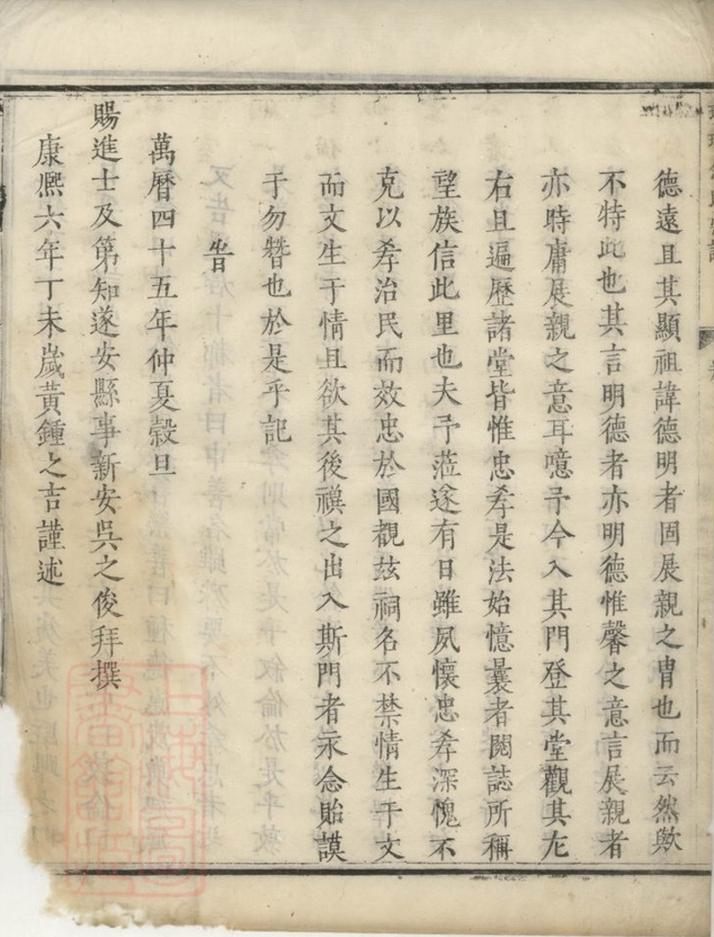 德遠且其顯祖諱德明者固展親之胄也而云然歟
不特此也其言明德者亦明德惟馨之意言展親者
亦時庸展親之意耳噫予今入其門登其堂觀其左
右且遍歷諸堂皆惟忠孝是法始憶曩者閱誌所稱
望族信此里也夫予蒞遂有日雖夙懷忠孝深愧不
克以孝治民而效忠於國觀茲祠名不禁情生于文
而文生于情且欲其後禩之出入斯門者永念貽謨
于勿替也於是乎記
旹
萬曆四十五年仲夏穀旦
賜進士及第知遂安縣事新安吳之俊拜撰
康熙六年丁未歲黃鍾之吉謹述